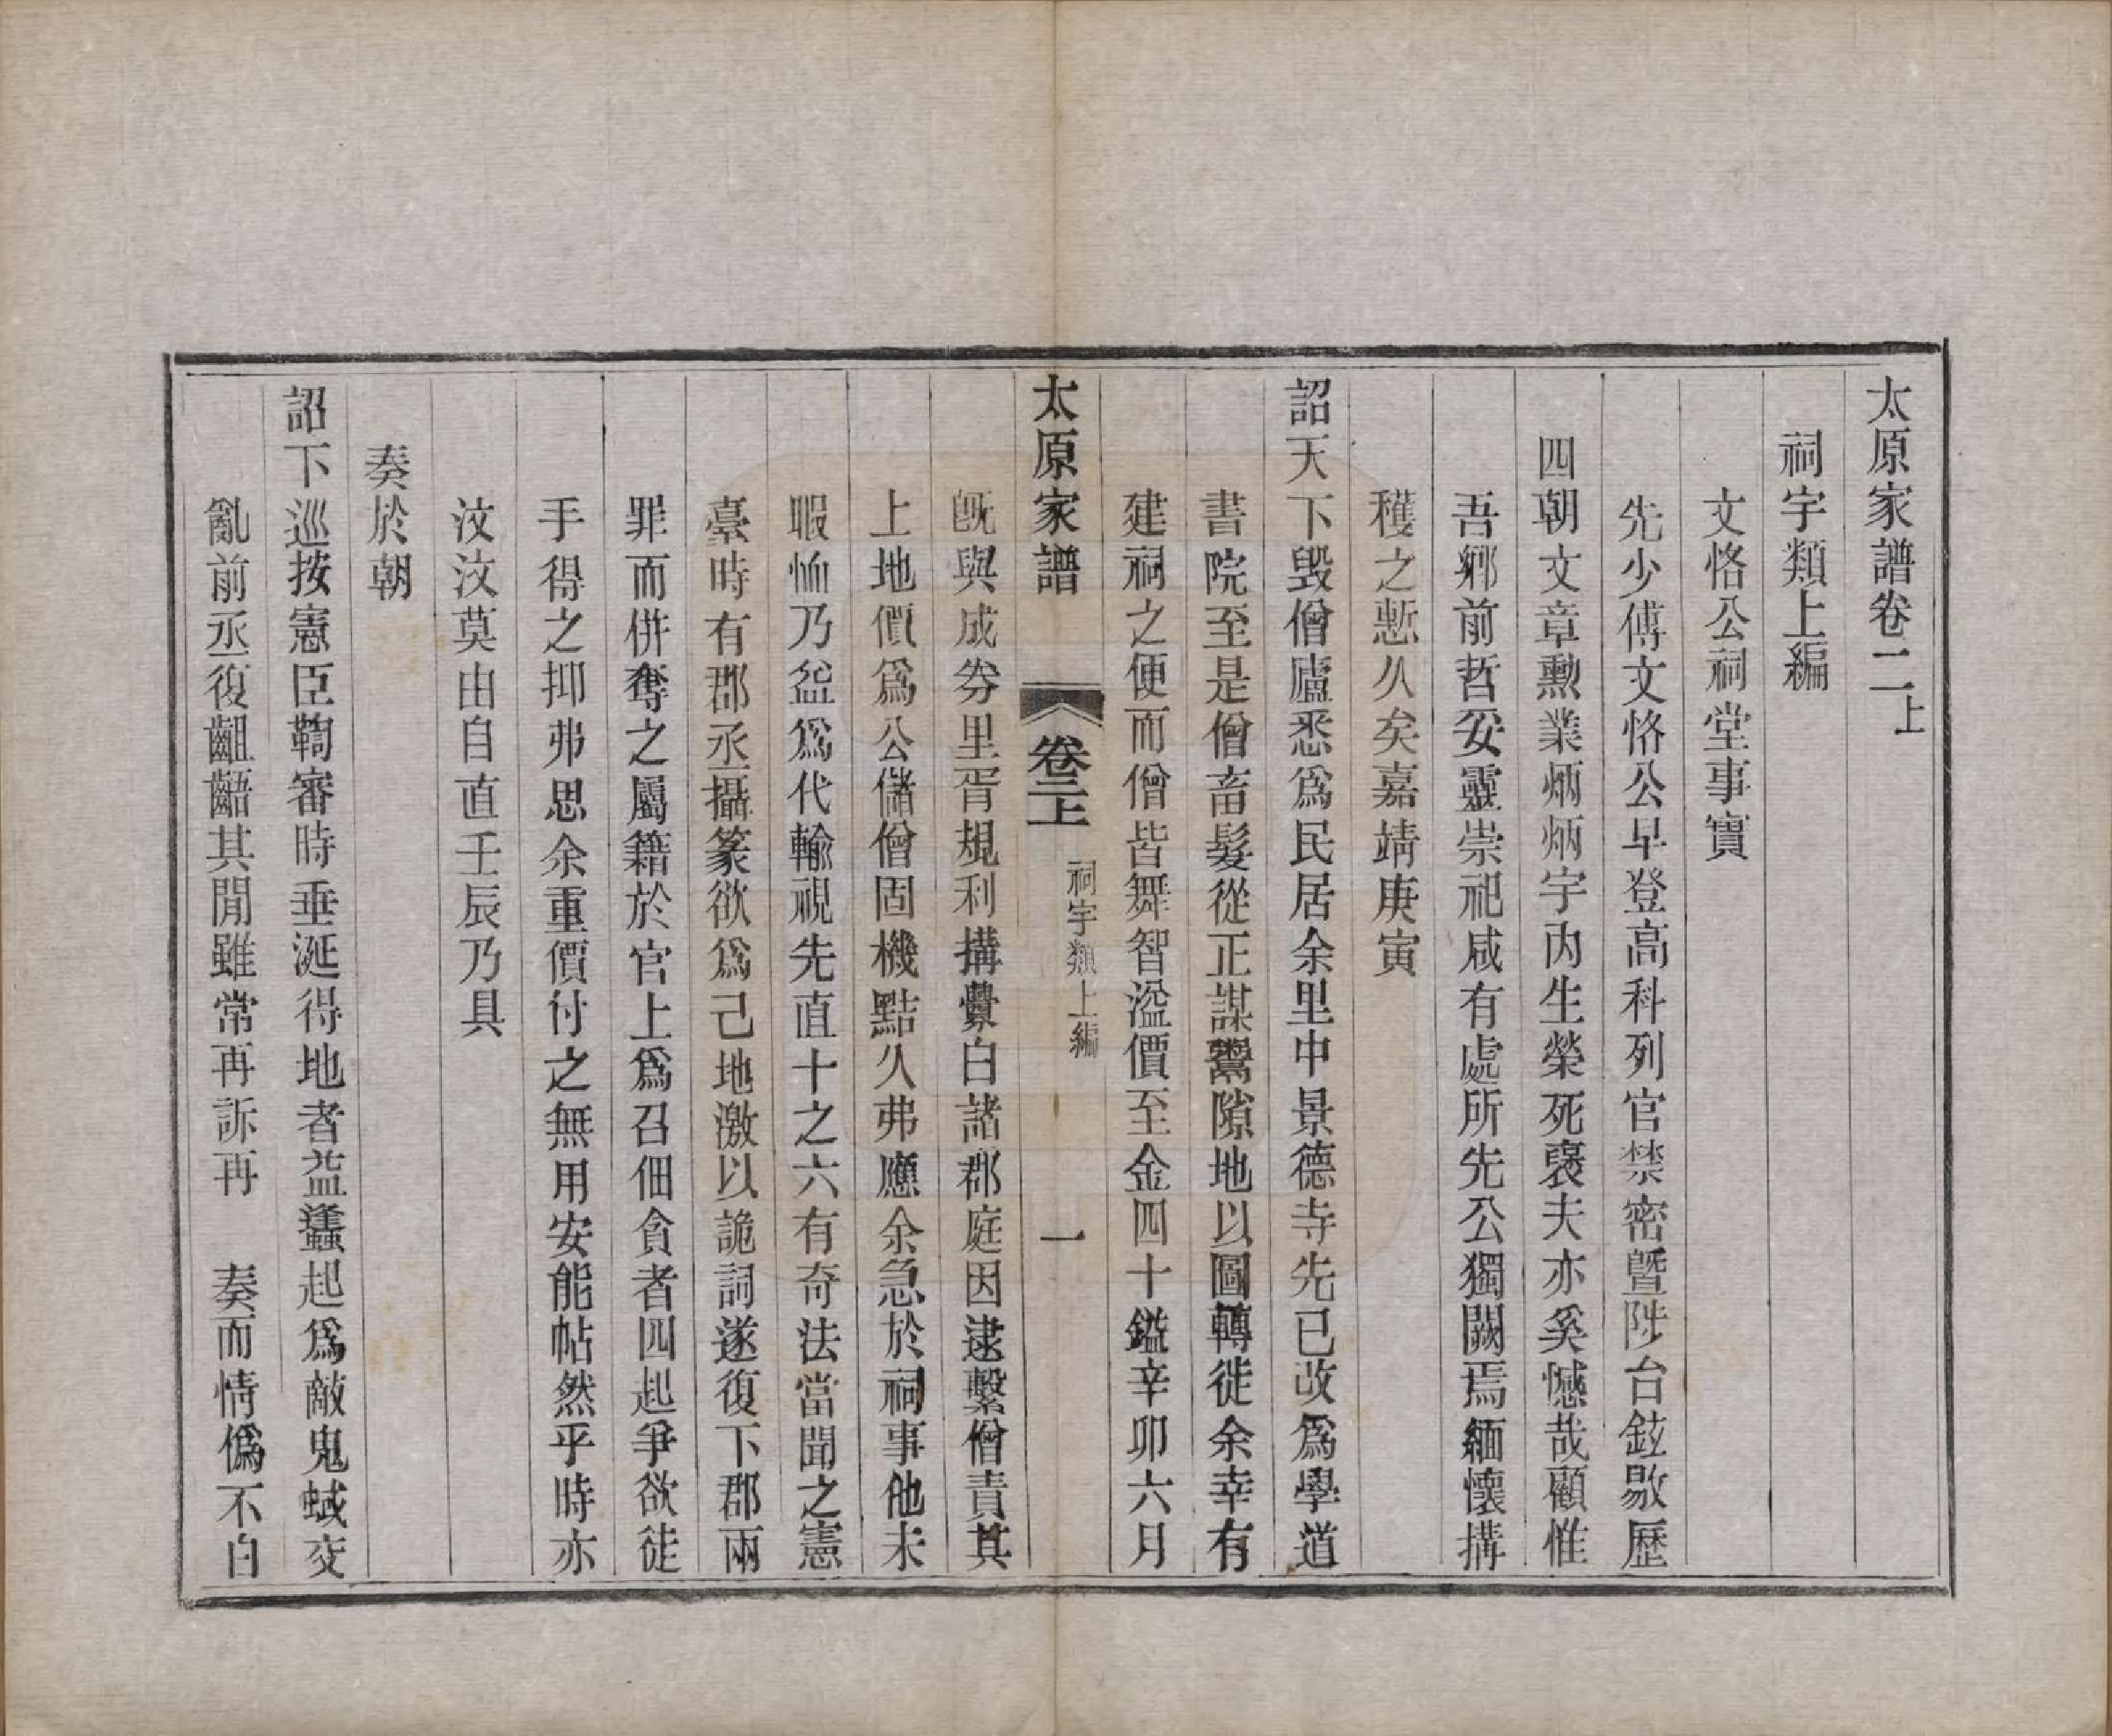 太原家譜卷二上
祠宇類上編
文恪公祠堂事實
先少傅文恪公早登高科列官禁密曁陟台鉉敭歷
四朝文章勲業炳炳宇內生榮死襃夫亦奚憾哉顧惟
吾鄉前哲妥靈崇祀咸有處所先公獨闕焉緬懷搆
穫之慙久矣嘉靖庚寅
詔天下毀僧廬悉爲民居余里中景德寺先已改爲學道
書院至是僧畜髮從正謀鬻隙地以圖轉徙余幸有
建祠之便而僧皆舞智溢價至金四十鎰辛卯六月
太原家譜
卷二上
祠宇類上編
一
旣與成劵里胥規利搆釁白諸郡庭因逮繫僧責其
上地價爲公儲僧固機黠久弗應余急於祠事他未
暇恤乃盆爲代輸視先直十之六有奇法當聞之憲
臺時有郡丞攝篆欲爲己地激以詭詞遂復下郡兩
罪而併奪之屬籍於官上爲召佃貪者四起爭欲徒
手得之抑弗思余重價付之無用安能帖然乎時亦
汶汶莫由自直壬辰乃具
奏於朝
詔下巡按憲臣鞫審時垂涎得地者益蠭起爲敵鬼蜮交
亂前丞復齟齬其閒雖常再訴再　奏而情僞不白